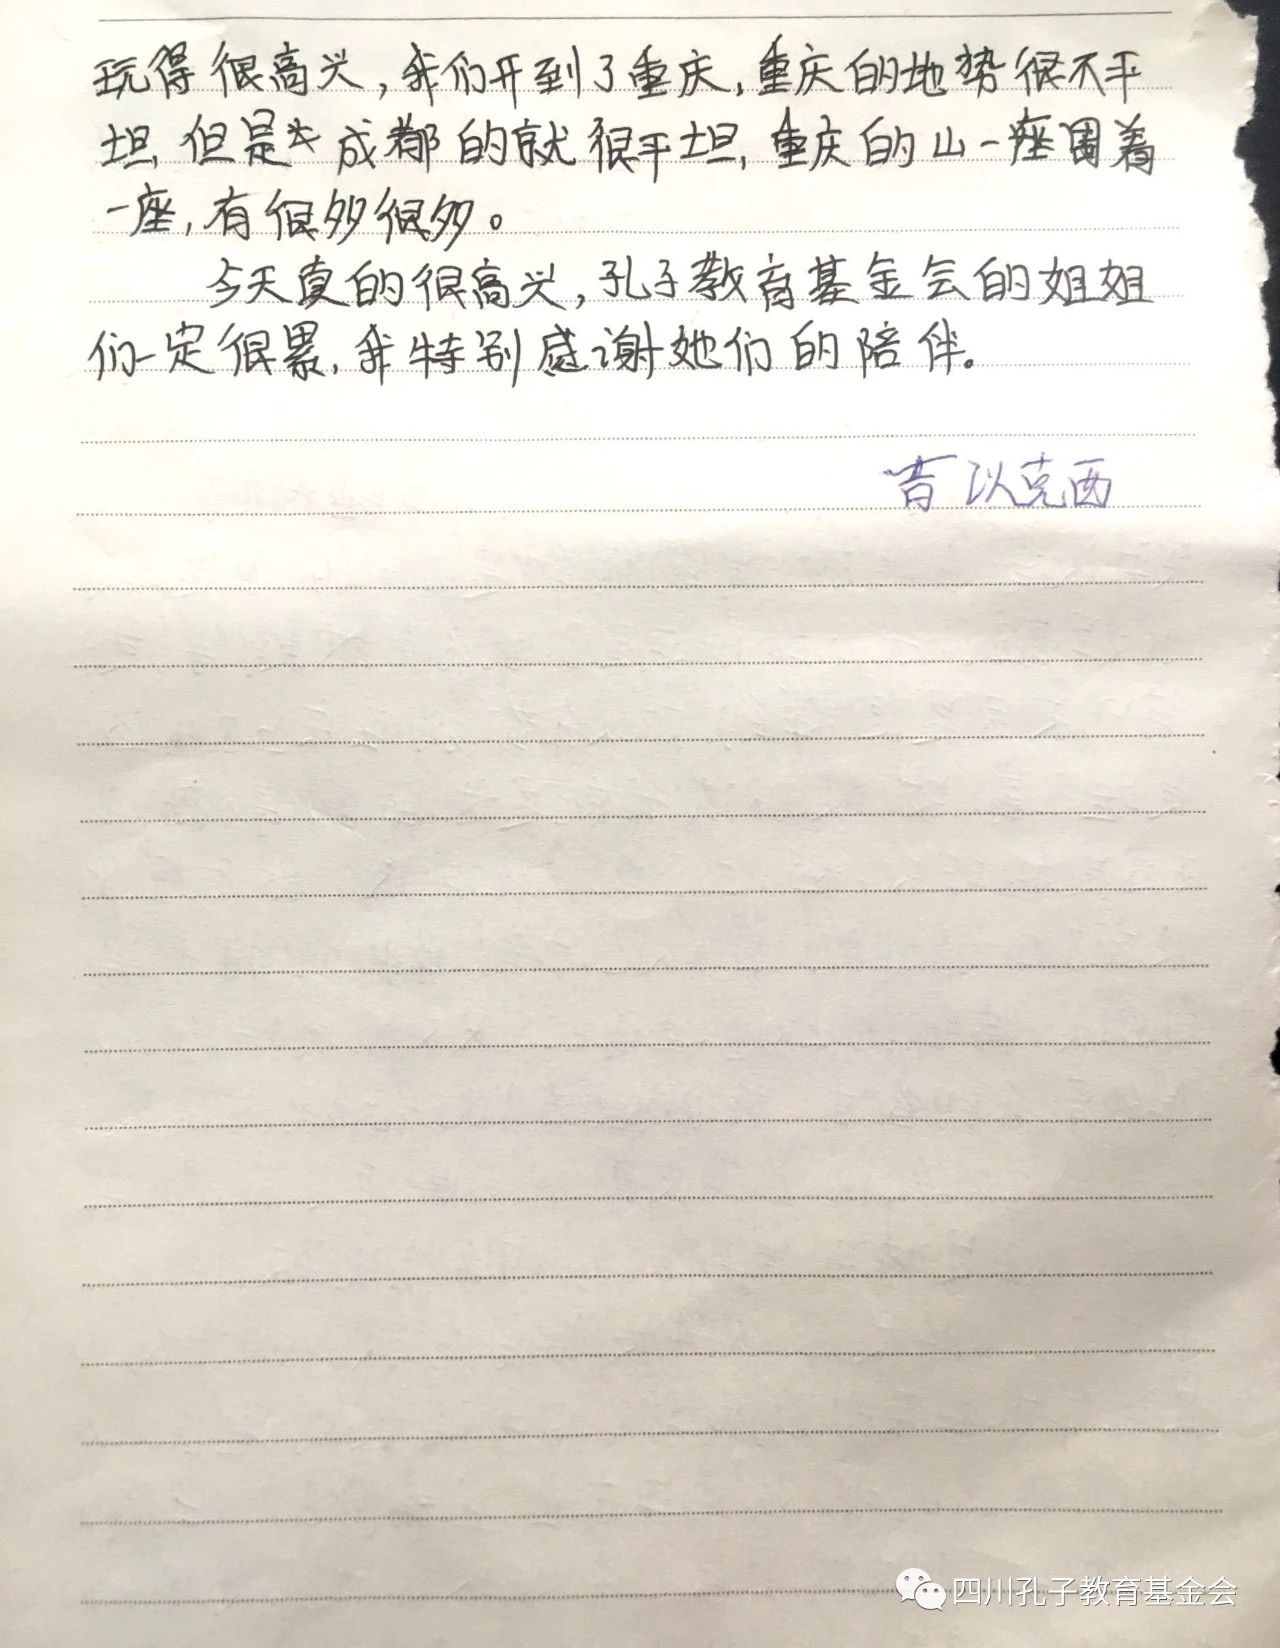 玩得很高兴,我们开到了重庆,重庆的地势很不平
坦,但是成都的就很平坦,重庆的山一座围着
一座,有很多很多。
今天真的很高兴,孔子教育基金会的姐姐
们一定很累,我特别感谢她们的陪伴。
昔以克西
四川孔子教育基金会